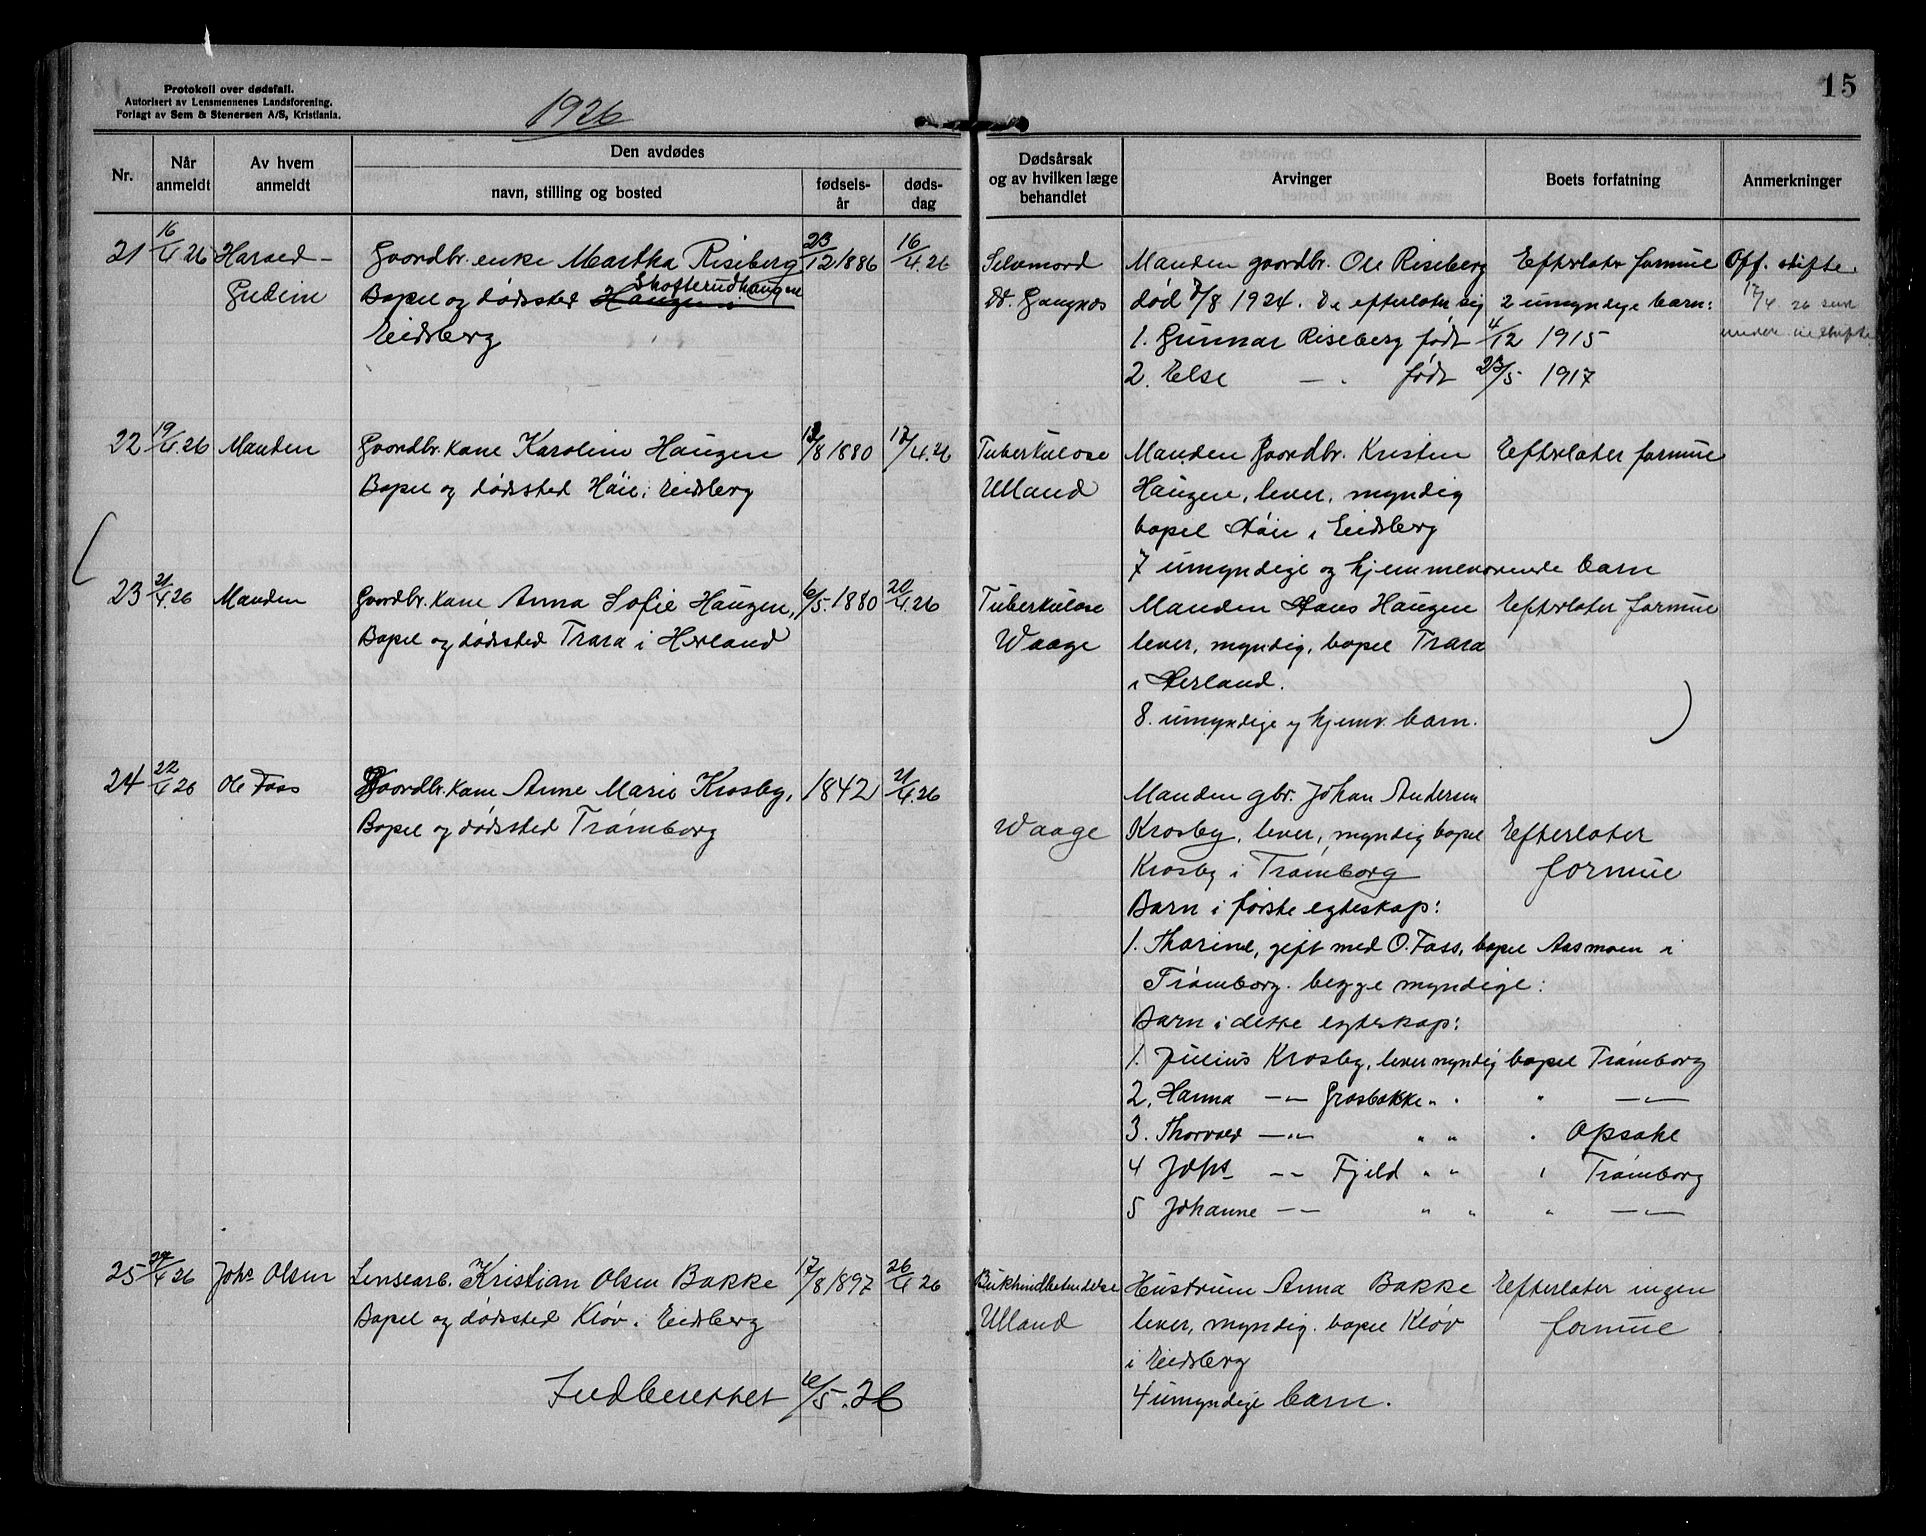 15
Protokoll over dødsfall.
Autorisert av Lensmennenes Landsforening.
Forlagt av Sem & Stenersen A/S, Kristiania.
1926
Nr.
Når anmeldt
Av hvem anmeldt
Den avdødes
navn, stilling og bosted
fødselsår
dødsdag
Dødsårsak og av hvilken læge behandlet
Arvinger
Boets forfatning
Anmerkninger
21 16/4 26 Harald Gudim Gaardbr. enke Martha Riseberg 23/12 1886 16/4.26
Skofterudhaugen
Bopel og dødssted Haugen i
Eidsberg
Selvmord
Dr. Gangnæs
Manden gaardbr. Ole Riseberg Efterlater formue Off. skifte.
død 7/8 1924. De efterlater sig 2 umyndige barn: 17/4 26 sendt
1. Gunnar Riseberg født 4/12 1915
2. Else — født 23/5 1917
22 19/4.26 Manden Gaardbr. kone Karoline Haugen 13/8 1880 17/4.26
Bopel og dødssted Häie i Eidsberg
Tuberkulose
Ulland
Manden Gaardbr. Kristen Efterlater formue
Haugen, lever, myndig
bopel Häie i Eidsberg
7 umyndige og hjemmeværende barn
23 21/4.26 Manden Gaardbr. kone Anna Sofie Haugen, 6/5 1880 20/4.26
Bopel og dødssted Trara i Herland
Tuberkulose
Waage
Manden Hans Haugen Efterlater formue
lever, myndig, bopel Trara
i Herland.
8. umyndige og hjemv. barn.
24 22/4 26 Ole Fass Gaardbr. kone Anne Marie Krosby, 1842 21/4.26
Bopel og dødssted Trømborg
Waage
Manden gbr. Johan Andersen
Krosby, lever, myndig bopel Efterlater
Krosby i Trømborg formue
Barn i første egteskap:
1. Thorine, gift med O. Fass, bopel Aasmoen i
Trømborg. begge myndige:
Barn i dette egteskap:
1. Julius Krosby, lever myndig bopel Trømborg
2. Hanna —„— Grasbakke „ „ „ —„—
3. Thorvald —„— „ „ „ Opsahl
4 —„— Fjeld „ „ „ Trømborg
5 Johanne —„— „ „ „ —„—
25 /4 26 Johs Olsen Lensearb. Kristian Olsen Bakke 17/8 1897 26/4 26
Bopel og dødssted Kløv i Eidsberg
Bukhindbetændelse
Ulland
Hustruen Anna Bakke Efterlater ingen
lever, myndig. bopel Kløv formue
i Eidsberg
4 umyndige barn.
Indberettet 6/5.26